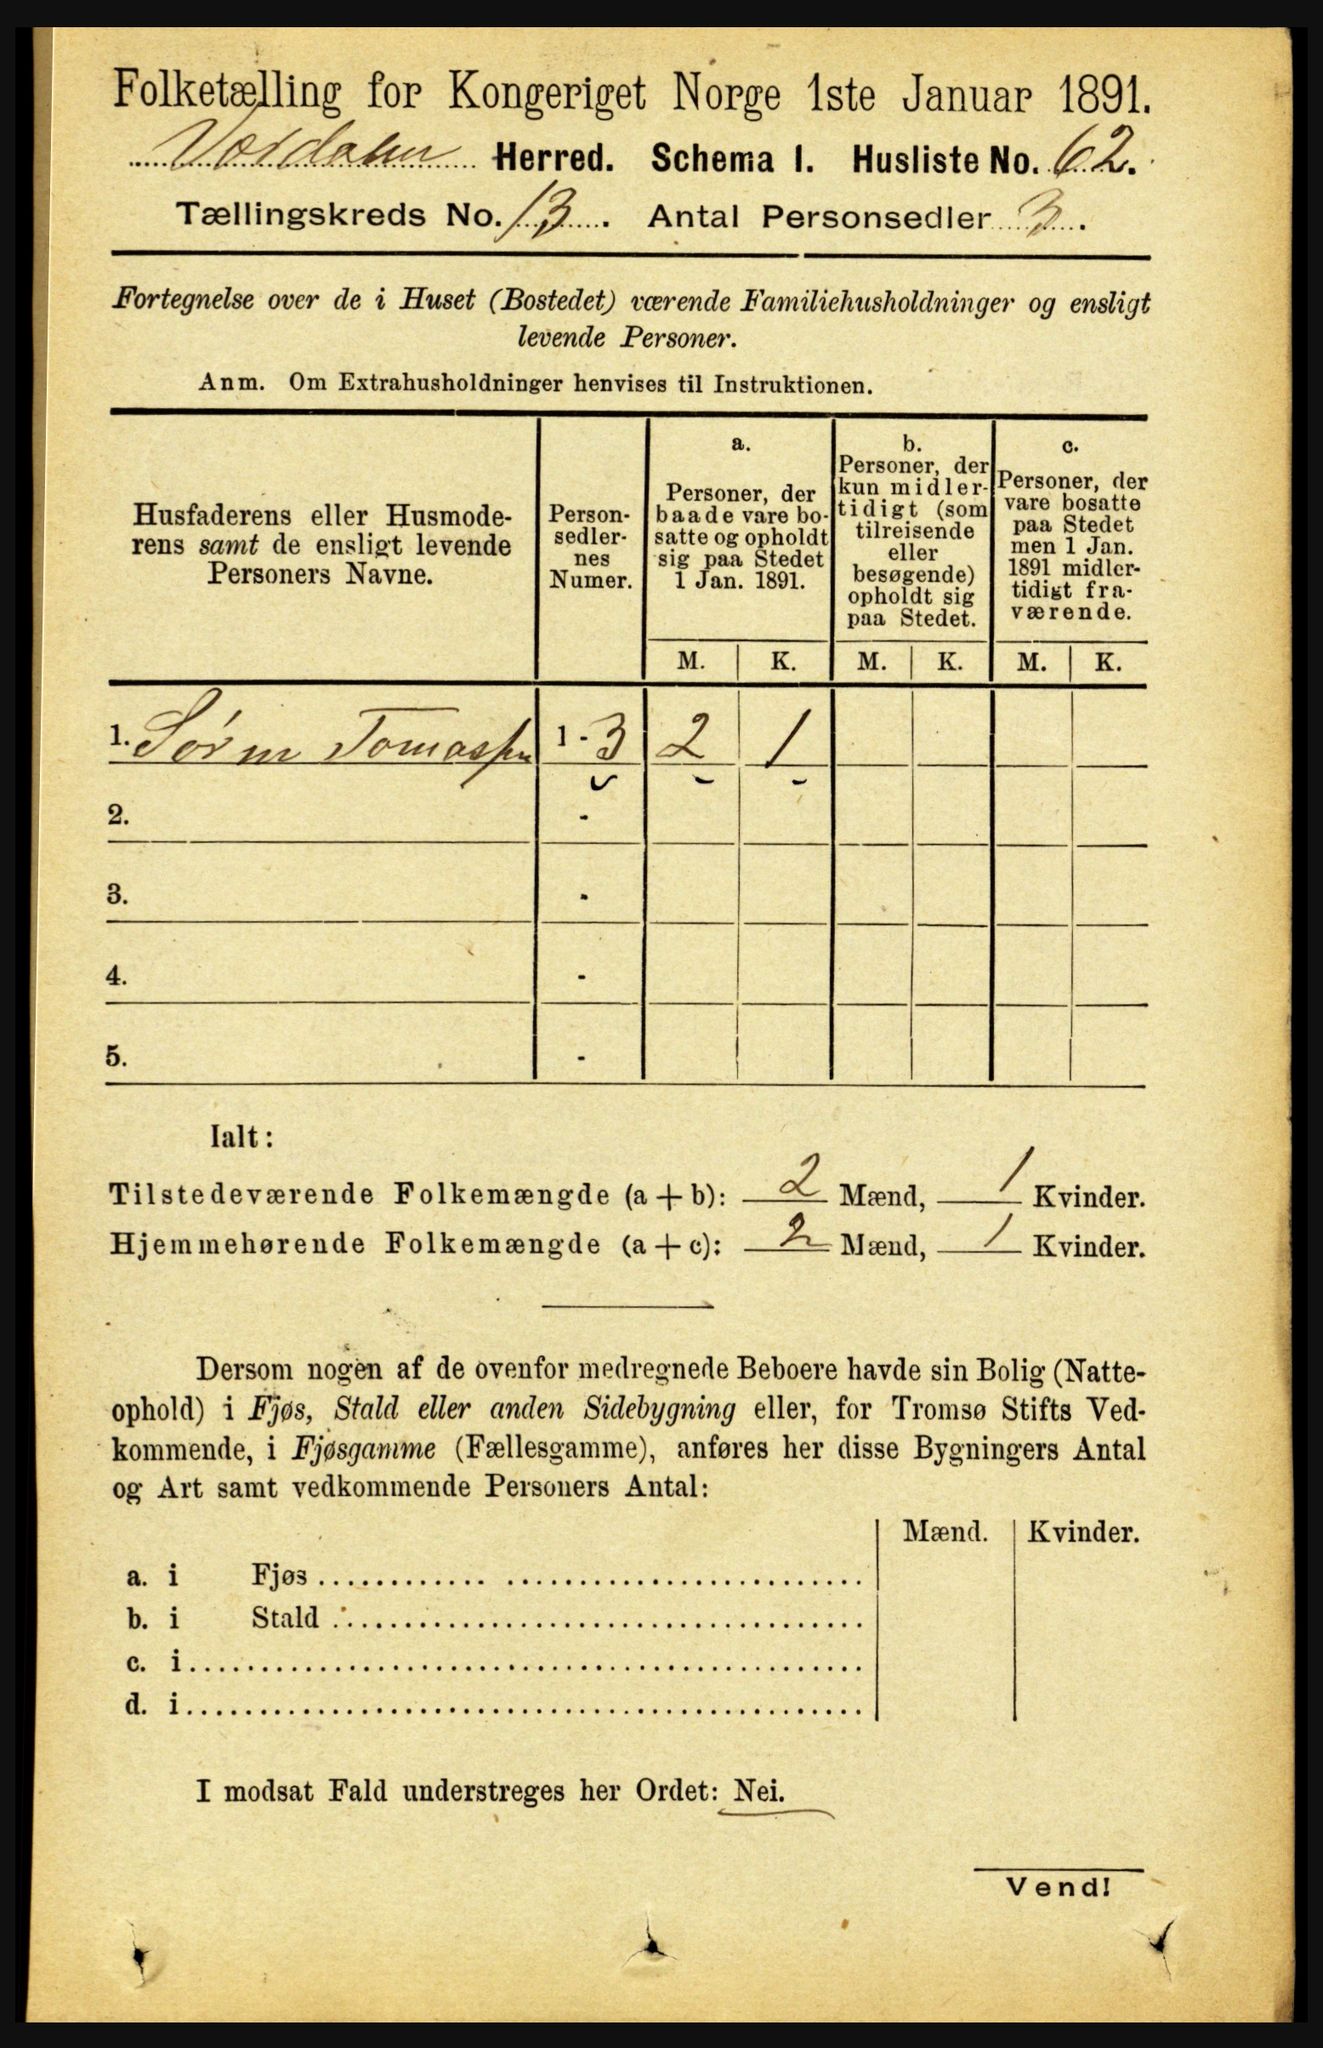 Folketælling for Kongeriget Norge 1ste Januar 1891.
Værdalen Herred. Schema I. Husliste No. 62.
Tællingskreds No. 13. Antal Personsedler 3.
Fortegnelse over de i Huset (Bostedet) værende Familiehusholdninger og ensligt
levende Personer.
Anm. Om Extrahusholdninger henvises til Instruktionen.
Husfaderens eller Husmode-
rens samt de ensligt levende
Personers Navne.
Person-
sedler-
nes
Numer.
a.
Personer, der
baade vare bo-
satte og opholdt
sig paa Stedet
1 Jan. 1891.
b.
Personer, der
kun midler-
tidigt (som
tilreisende
eller
besøgende)
opholdt sig
paa Stedet.
c.
Personer, der
vare bosatte
paa Stedet
men 1 Jan.
1891 midler-
tidigt fra-
værende.
M. K. M. K. M. K.
1. Sørn Tomassen 1 - 3 2 1
2. -
3. -
4. -
5. -
Ialt:
Tilstedeværende Folkemængde (a + b): 2 Mænd, 1 Kvinder.
Hjemmehørende Folkemængde (a + c): 2 Mænd, 1 Kvinder.
Dersom nogen af de ovenfor medregnede Beboere havde sin Bolig (Natte-
ophold) i Fjøs, Stald eller anden Sidebygning eller, for Tromsø Stifts Ved-
kommende, i Fjøsgamme (Fællesgamme), anføres her disse Bygningers Antal
og Art samt vedkommende Personers Antal:
Mænd. Kvinder.
a. i Fjøs
b. i Stald
c. i
d. i
I modsat Fald understreges her Ordet: Nei.
Vend!